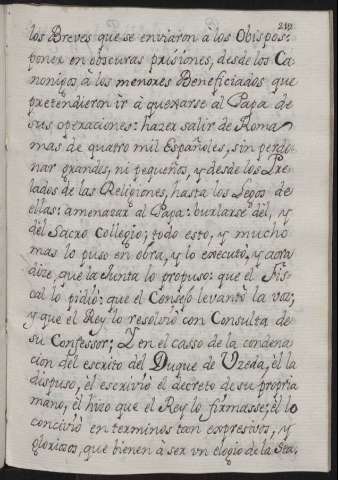 211
los Breves que se enviaron à los Obispos:
poner en obscuras prisiones, desde los Ca-
nonigos à los menores Beneficiados que
pretendieron ir à quexarse al Papa de
sus operaciones: hazer salir de Roma
mas de quatro mil Españoles, sin perdo-
nar grandes, ni pequeños, y desde los Pre-
lados de las Religiones, hasta los Legos de
ellas: amenazar al Papa: burlarse del, y
del Sacro Collegio; todo esto, y mucho
mas lo puso en obra, y lo executò, y aora
dize, que la Junta lo propuso: que el Fis-
cal lo pidiò: que el Consejo levantò la voz;
y que el Rey lo resolviò con Consulta de
su Confessor; Y en el casso de la condena-
cion del escrito del Duque de Uzeda, èl la
dispuso, èl escriviò el decreto de su propria
mano, èl hizo que el Rey lo firmasse; èl lo
conciviò en terminos tan expresivos, y
gloriosos, que bienen à ser vn elogio de la